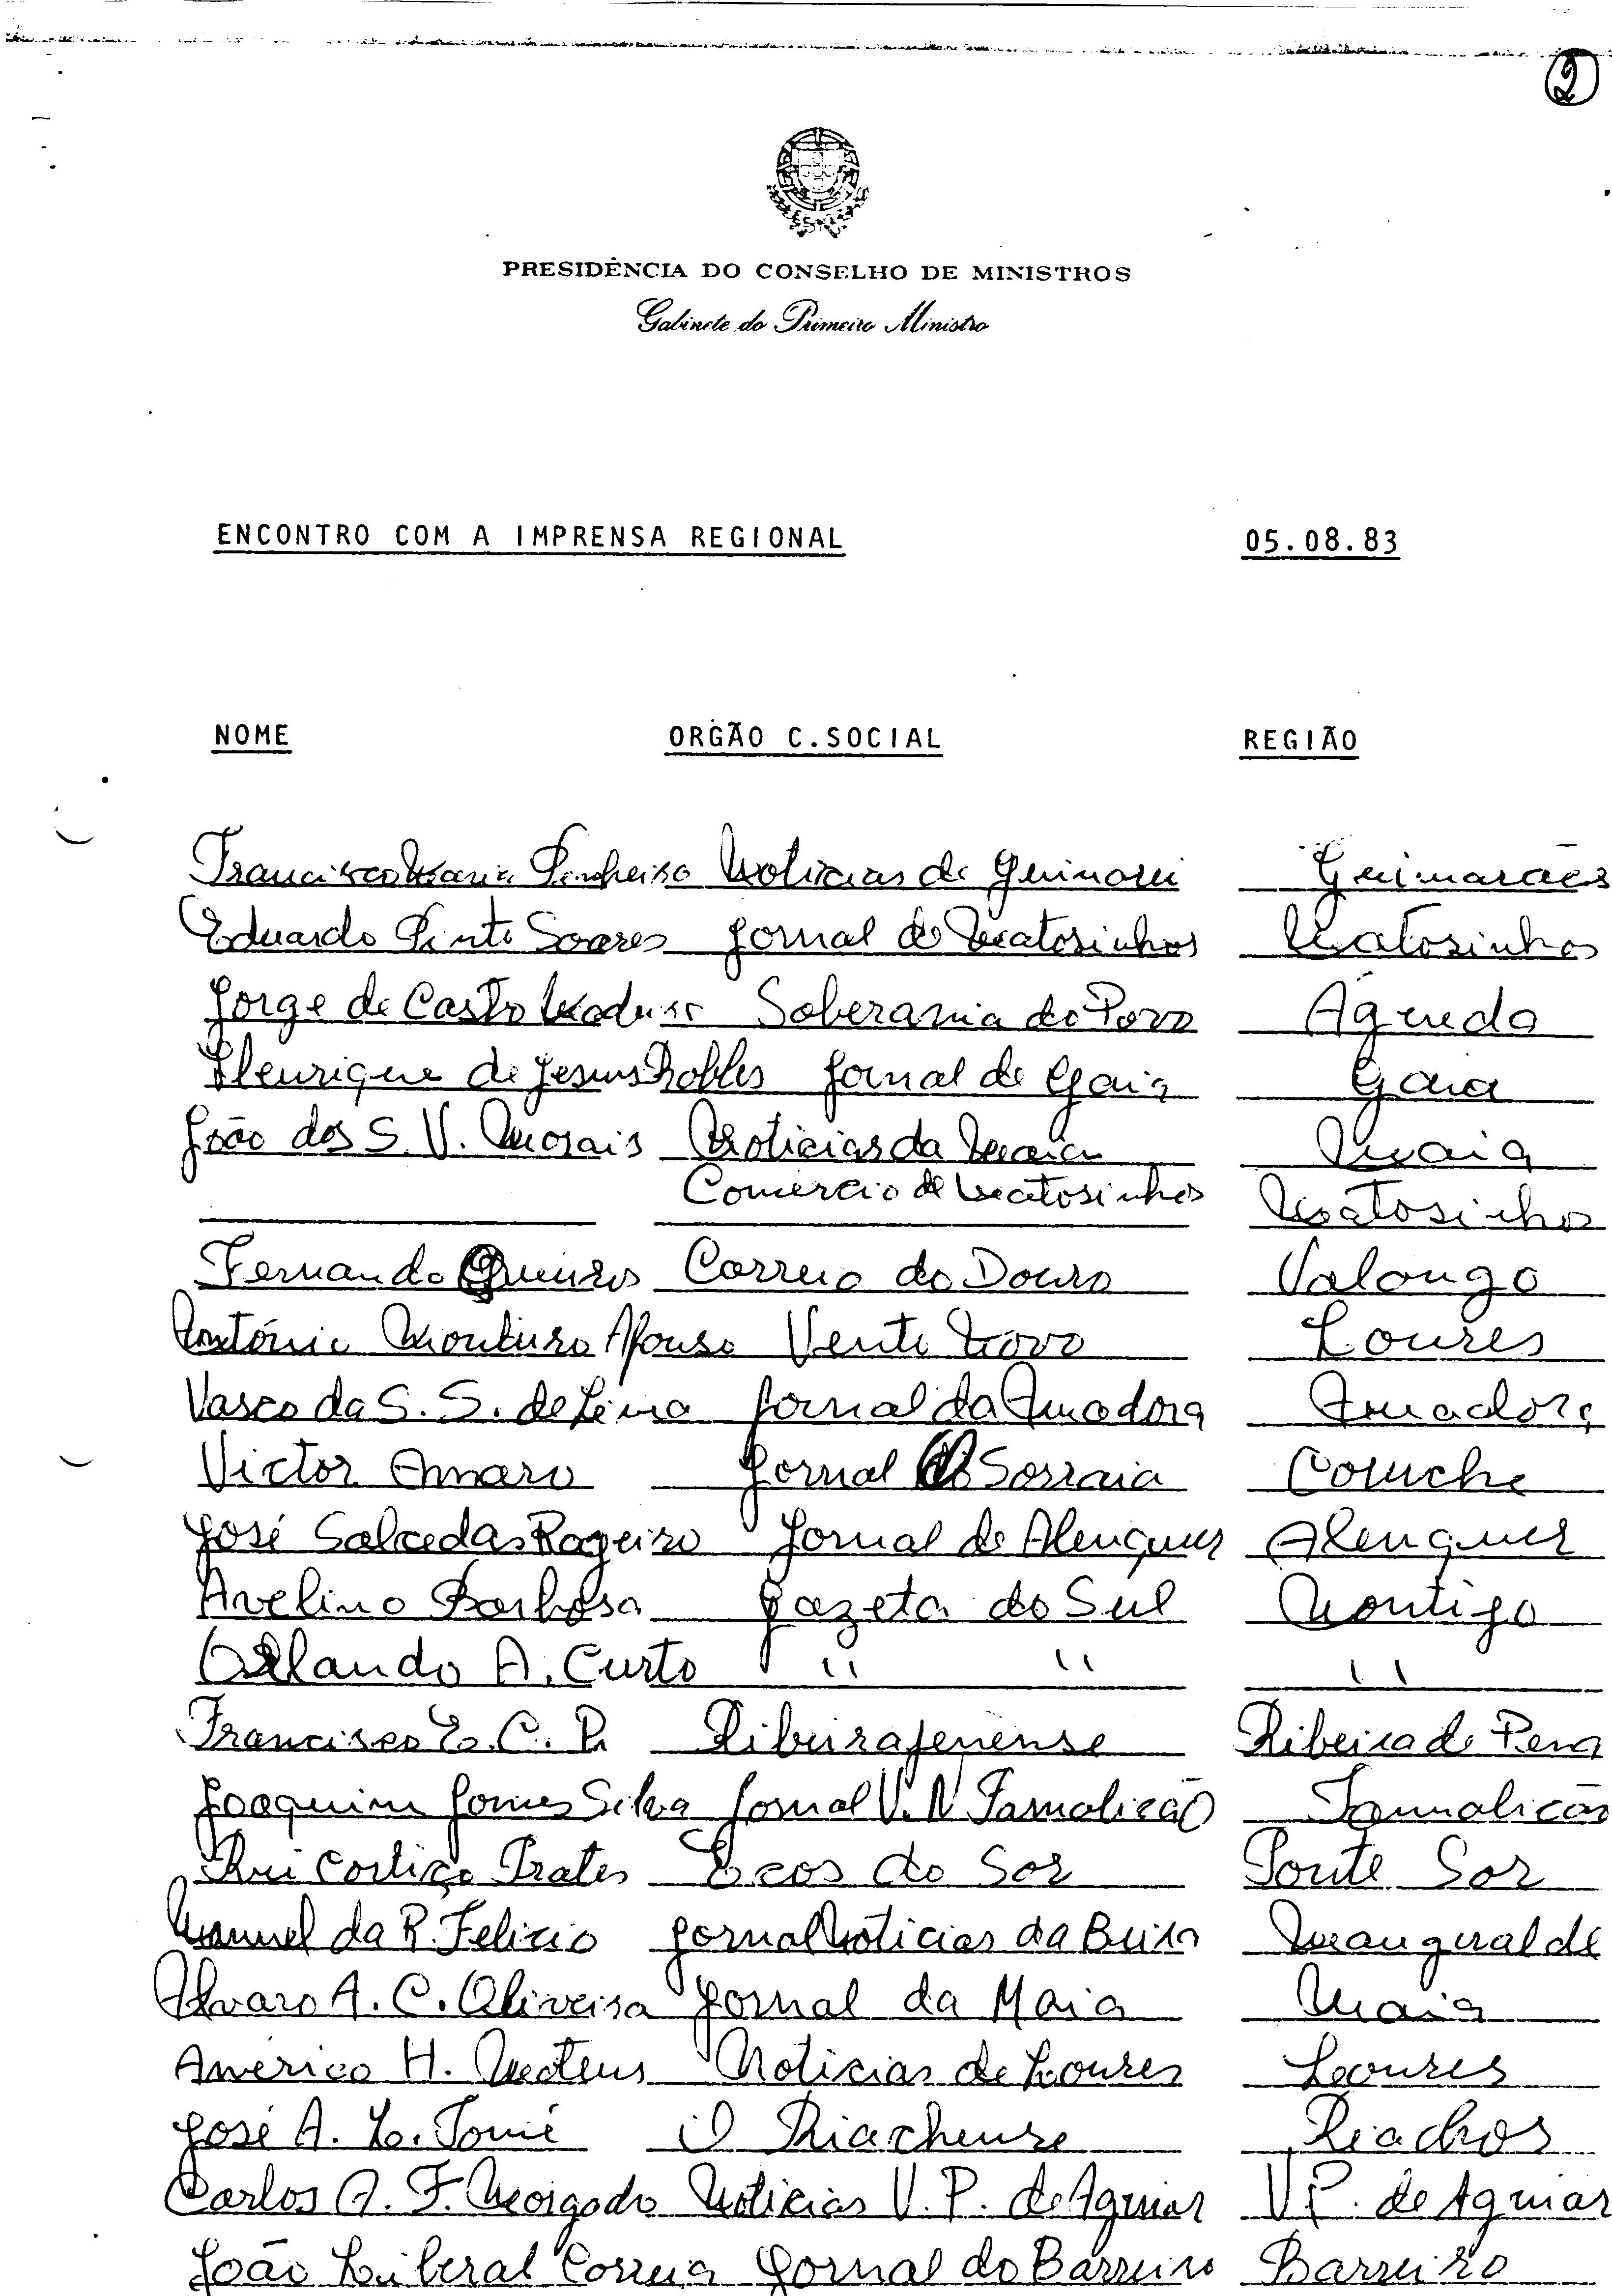 2
PRESIDÊNCIA DO CONSELHO DE MINISTROS
Gabinete do Primeiro Ministro
ENCONTRO COM A IMPRENSA REGIONAL 05.08.83
NOME ORGÃO C.SOCIAL REGIÃO
Francisco Maria Pinheiro Noticias de Guimarães Guimarães
Eduardo Pinto Soares Jornal de Matosinhos Matosinhos
Jorge de Castro Soberania do Povo Agueda
Henrique de Jesus Robles Jornal de Gaia Gaia
João dos S. V. Morais Noticias da Maia Maia
Comercio de Matosinhos Matosinhos
Fernando Correio do Douro Valongo
António Monteiro Afonso Vento Novo Loures
Vasco da S. S. de Lima Jornal da Amadora Amadora
Victor Amaro Jornal do Sorraia Coruche
José Salcedas Rogeiro Jornal de Alenquer Alenquer
Avelino Barbosa Gazeta do Sul Montijo
Orlando A. Curto " " "
Francisco E. C. P. Ribeirapenense Ribeira de Pena
Joaquim Gomes Silva Jornal V. N Famalicão Famalicão
Rui Cortiço Prates Ecos do Sor Ponte Sor
Manuel da R. Felicio Jornal Noticias da Beira Mangualde
Alvaro A. C. Oliveira Jornal da Maia Maia
Américo H. Mateus Noticias de Loures Loures
José A. L. Tomé O Riachense Riachos
Carlos A. F. Morgado Noticias V. P. de Aguiar V. P. de Aguiar
João Liberal Correia Jornal do Barreiro Barreiro